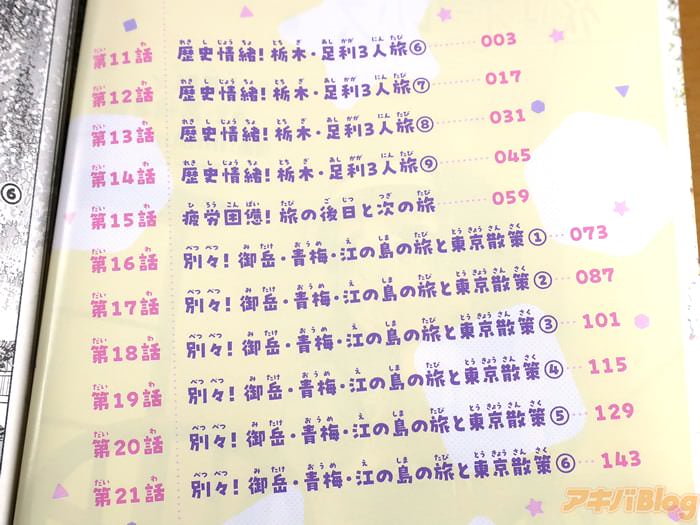 第11話 歴史情緒!栃木・足利3人旅⑥ 003
第12話 歴史情緒!栃木・足利3人旅⑦ 017
第13話 歴史情緒!栃木・足利3人旅⑧ 031
第14話 歴史情緒!栃木・足利3人旅⑨ 045
第15話 疲労困憊!旅の後日と次の旅 059
第16話 別々!御岳・青梅・江の島の旅と東京散策① 073
第17話 別々!御岳・青梅・江の島の旅と東京散策② 087
第18話 別々!御岳・青梅・江の島の旅と東京散策③ 101
第19話 別々!御岳・青梅・江の島の旅と東京散策④ 115
第20話 別々!御岳・青梅・江の島の旅と東京散策⑤ 129
第21話 別々!御岳・青梅・江の島の旅と東京散策⑥ 143
⑥
アキバBlog